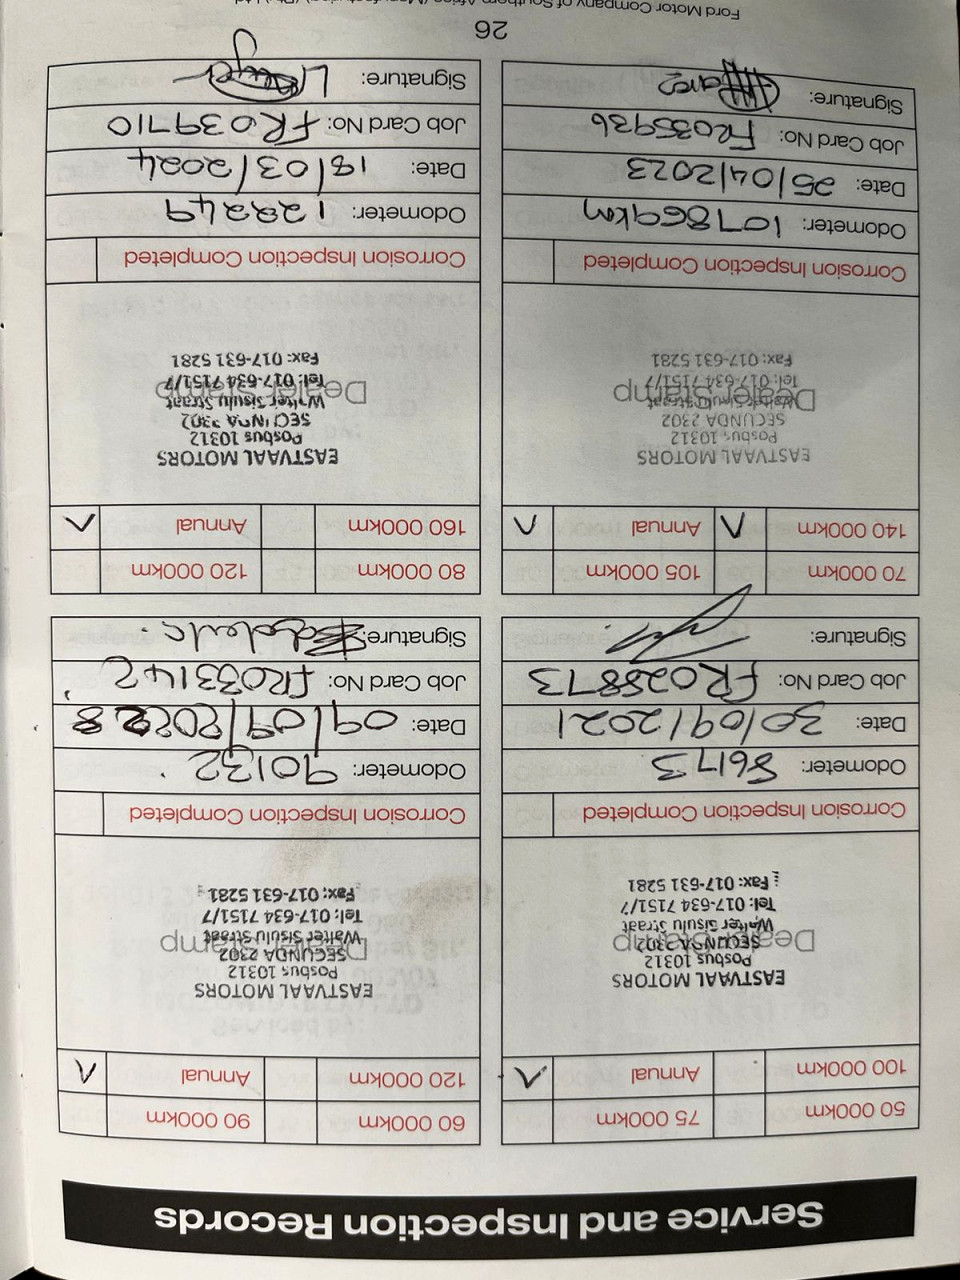 Service and Inspection Records
50 000km 75 000km
100 000km Annual ✓
Dealer Stamp
EASTVAAL MOTORS
Posbus 10312
SECUNDA 2302
Walter Sisulu Straat
Tel: 017-634 7151/7
Fax: 017-631 5281
Corrosion Inspection Completed
Odometer: 86173
Date: 30/09/2021
Job Card No: FR028873
Signature:
60 000km 90 000km
120 000km Annual ✓
Dealer Stamp
EASTVAAL MOTORS
Posbus 10312
SECUNDA 2302
Walter Sisulu Straat
Tel: 017-634 7151/7
Fax: 017-631 5281
Corrosion Inspection Completed
Odometer: 90132
Date: 09/09/2022
Job Card No: FR033142
Signature:
70 000km 105 000km
140 000km ✓ Annual ✓
Dealer Stamp
EASTVAAL MOTORS
Posbus 10312
SECUNDA 2302
Walter Sisulu Straat
Tel: 017-634 7151/7
Fax: 017-631 5281
Corrosion Inspection Completed
Odometer: 107869km
Date: 25/04/2023
Job Card No: FR035936
Signature:
80 000km 120 000km
160 000km Annual ✓
Dealer Stamp
EASTVAAL MOTORS
Posbus 10312
SECUNDA 2302
Walter Sisulu Straat
Tel: 017-634 7151/7
Fax: 017-631 5281
Corrosion Inspection Completed
Odometer: 122249
Date: 18/03/2024
Job Card No: FR039710
Signature:
26
Ford Motor Company of Southern Africa